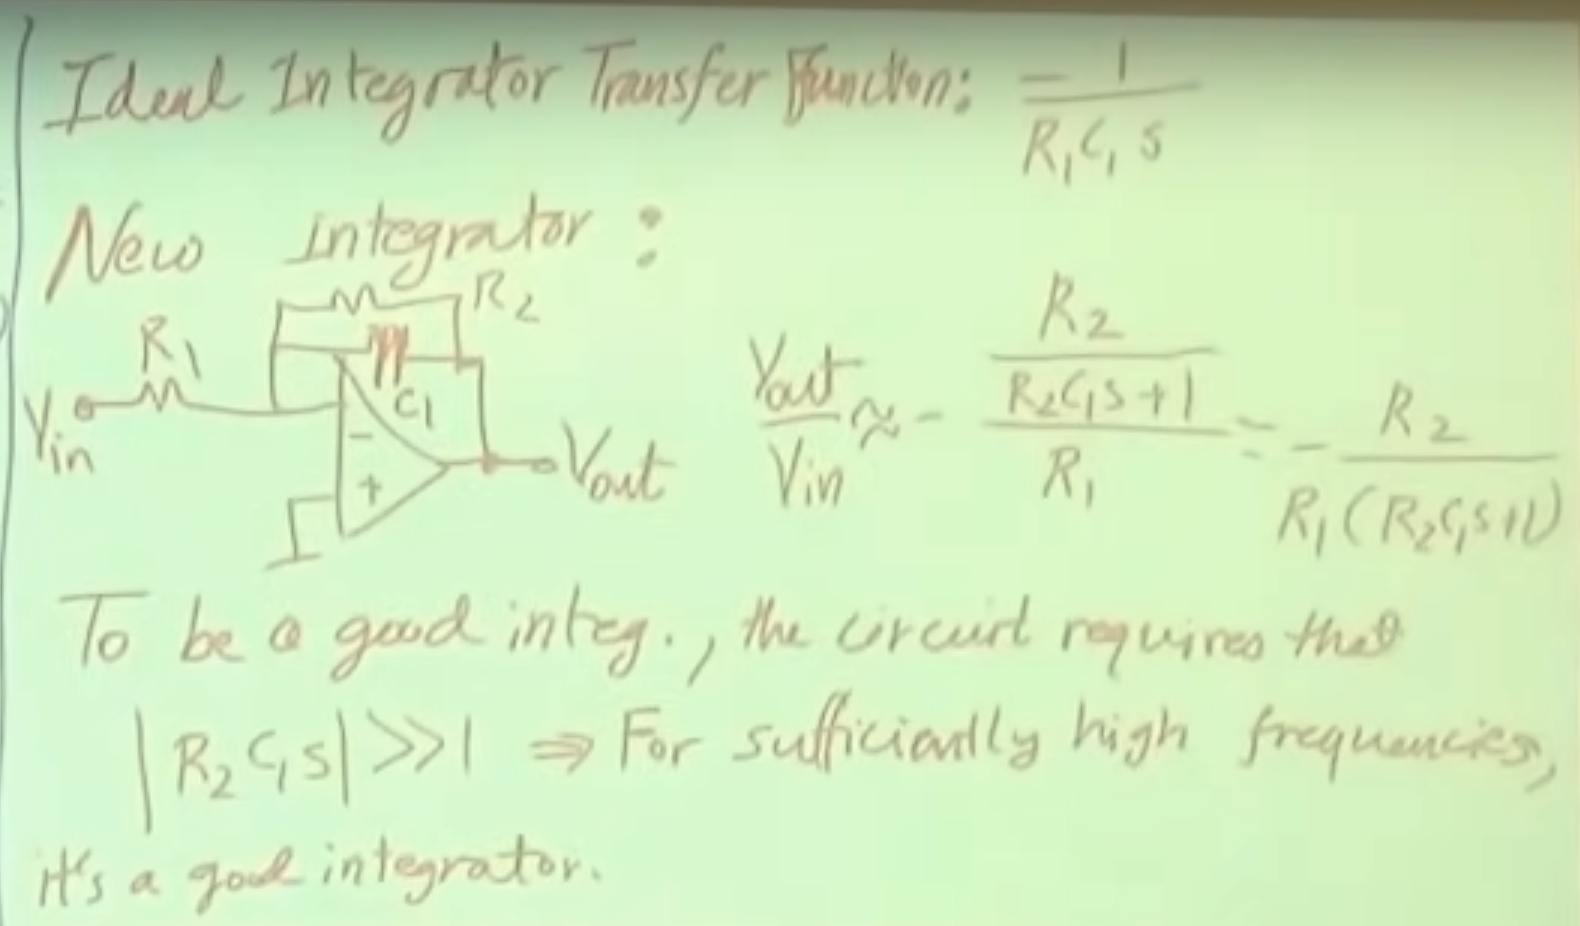 Ideal Integrator Transfer Function: -1/(R₁C₁s)
New integrator :
R₂
R₁
C₁
Vin
-
+
Vout
Vout/Vin ≈ - (R₂/(R₂C₁s+1))/R₁ = - R₂/(R₁(R₂C₁s+1))
To be a good integ., the circuit requires that
|R₂C₁s| >> 1 ⇒ For sufficiently high frequencies,
it's a good integrator.